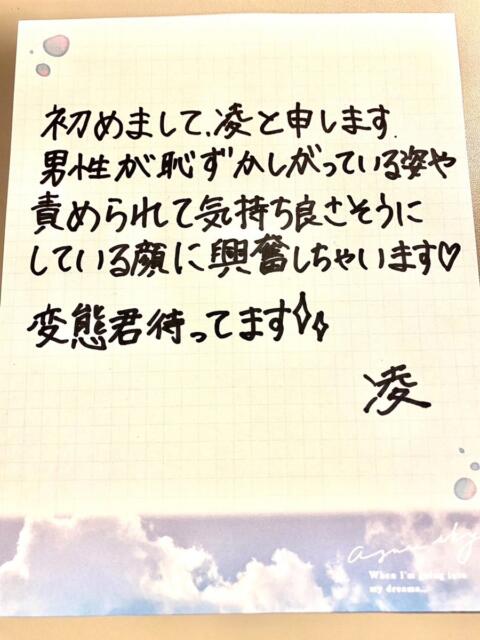 初めまして、凌と申します.
男性が恥ずかしがっている姿や
責められて気持ち良さそうに
している顔に興奮しちゃいます♡
変態君待ってます
凌
When I'm going into
my dreams...